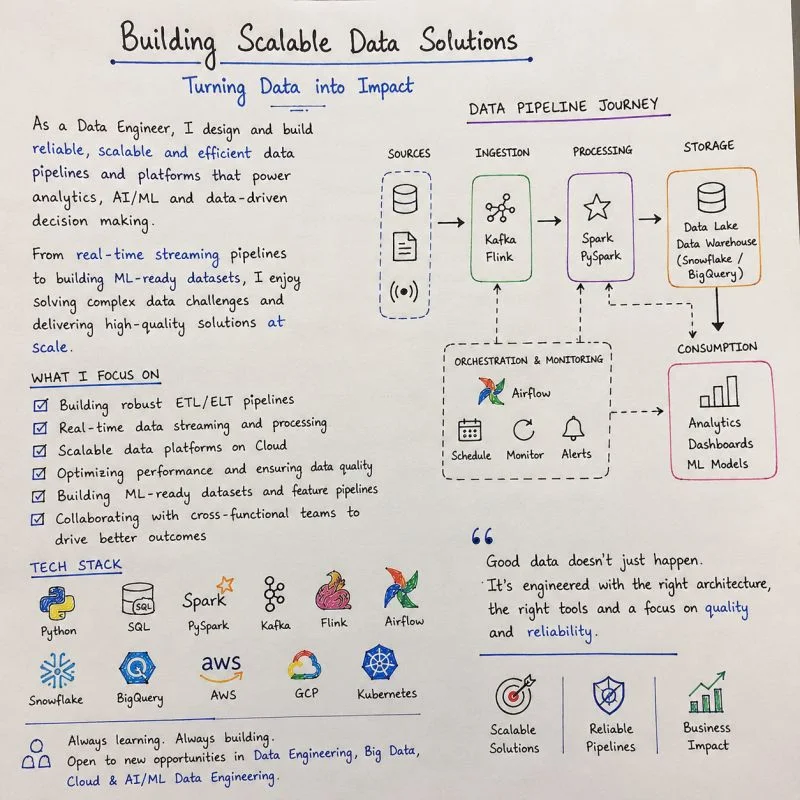 Building Scalable Data Solutions
Turning Data into Impact
As a Data Engineer, I design and build
reliable, scalable and efficient data
pipelines and platforms that power
analytics, AI/ML and data-driven
decision making.
From real-time streaming pipelines
to building ML-ready datasets, I enjoy
solving complex data challenges and
delivering high-quality solutions at
scale.
WHAT I FOCUS ON
Building robust ETL/ELT pipelines
Real-time data streaming and processing
Scalable data platforms on Cloud
Optimizing performance and ensuring data quality
Building ML-ready datasets and feature pipelines
Collaborating with cross-functional teams to
drive better outcomes
TECH STACK
Python
SQL
SQL
Spark
PySpark
Kafka
Flink
Airflow
Snowflake
BigQuery
aws
AWS
GCP
Kubernetes
Always learning. Always building.
Open to new opportunities in Data Engineering, Big Data,
Cloud & AI/ML Data Engineering.
DATA PIPELINE JOURNEY
SOURCES
INGESTION
Kafka
Flink
PROCESSING
Spark
PySpark
STORAGE
Data Lake
Data Warehouse
(Snowflake /
BigQuery)
ORCHESTRATION & MONITORING
Airflow
Schedule
Monitor
Alerts
CONSUMPTION
Analytics
Dashboards
ML Models
“
Good data doesn't just happen.
It's engineered with the right architecture,
the right tools and a focus on quality
and reliability.
Scalable
Solutions
Reliable
Pipelines
Business
Impact